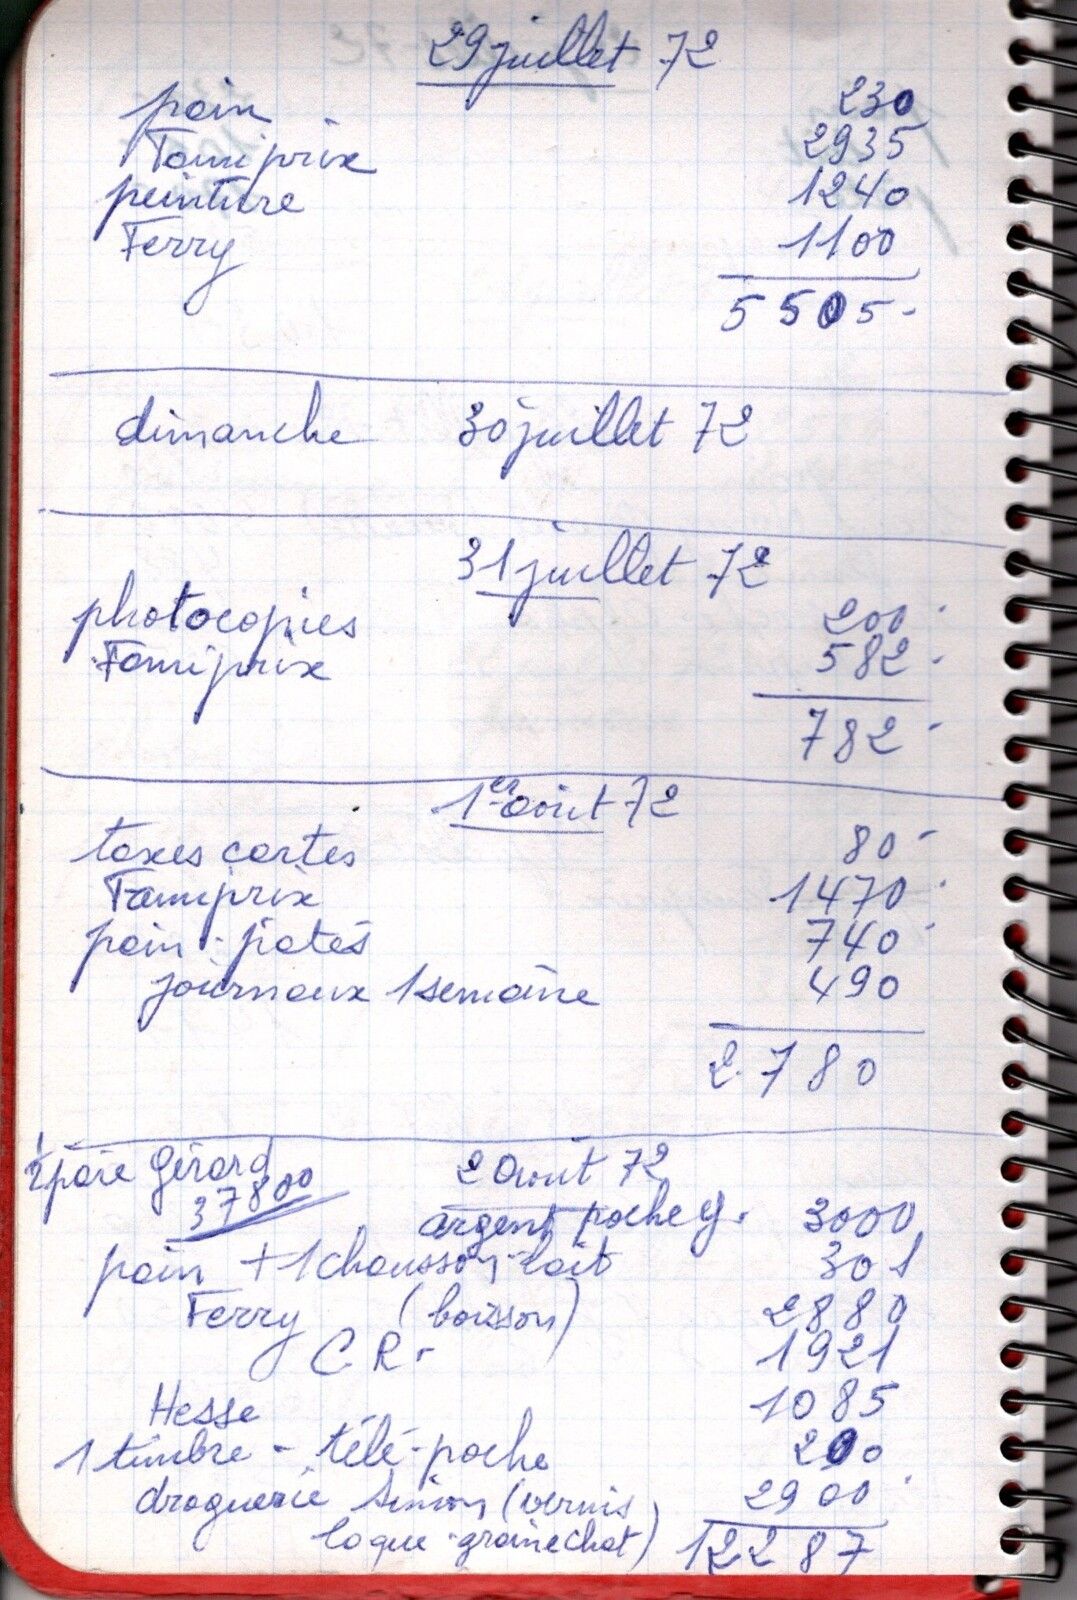 29 juillet 72
pain 230
Famiprix 2935
peinture 1240
Ferry 1100
5505-
dimanche 30 juillet 72
31 juillet 72
photocopies 200-
Famiprix 582-
782-
1er août 72
taxes cartes 80-
Famiprix 1470-
pain - patés 740-
journaux 1 semaine 490
2.780
1/2 paie Gérard 2 Aout 72
37800
argent poche G. 3000
pain + 1 chausson-lait 301
Ferry (boisson) 2880
C.R. 1921
Hesse 1085
1 timbre - télé-poche 200
droguerie Simon (vernis 2900
laque-graine chat) 12287